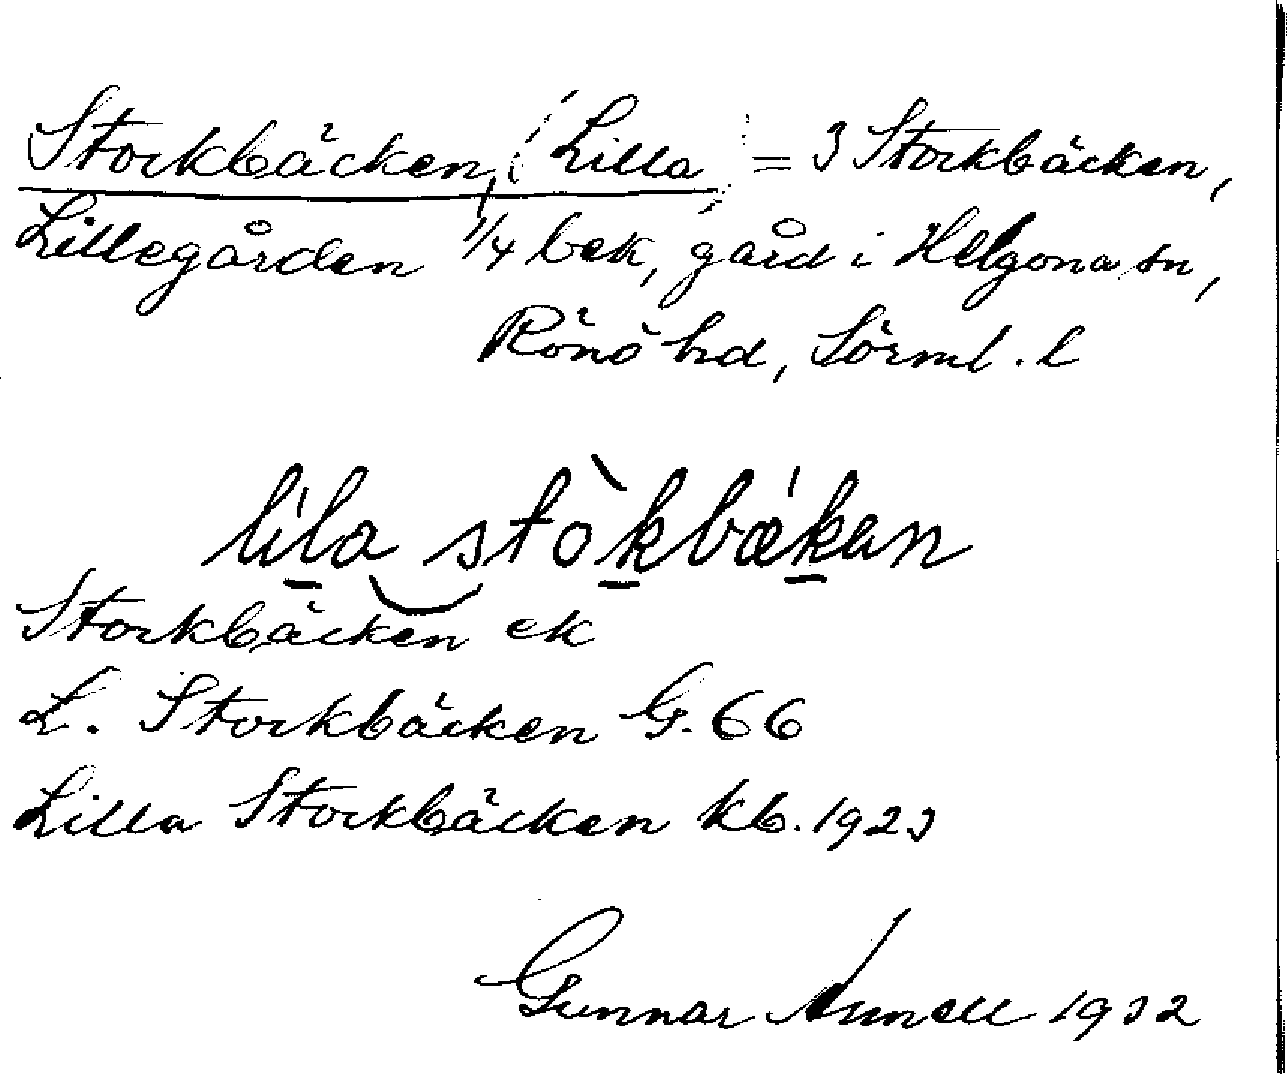 Storkbäcken, (Lilla) = 3 Storkbäcken,
Lillegården 1/4 bek, gård i Helgona sn,
Rönö hd, Sörml. l
lila stòkbækan
Storkbäcken ek
L. Storkbäcken G. 66
Lilla Storkbäcken kb. 1923
Gunnar 1932